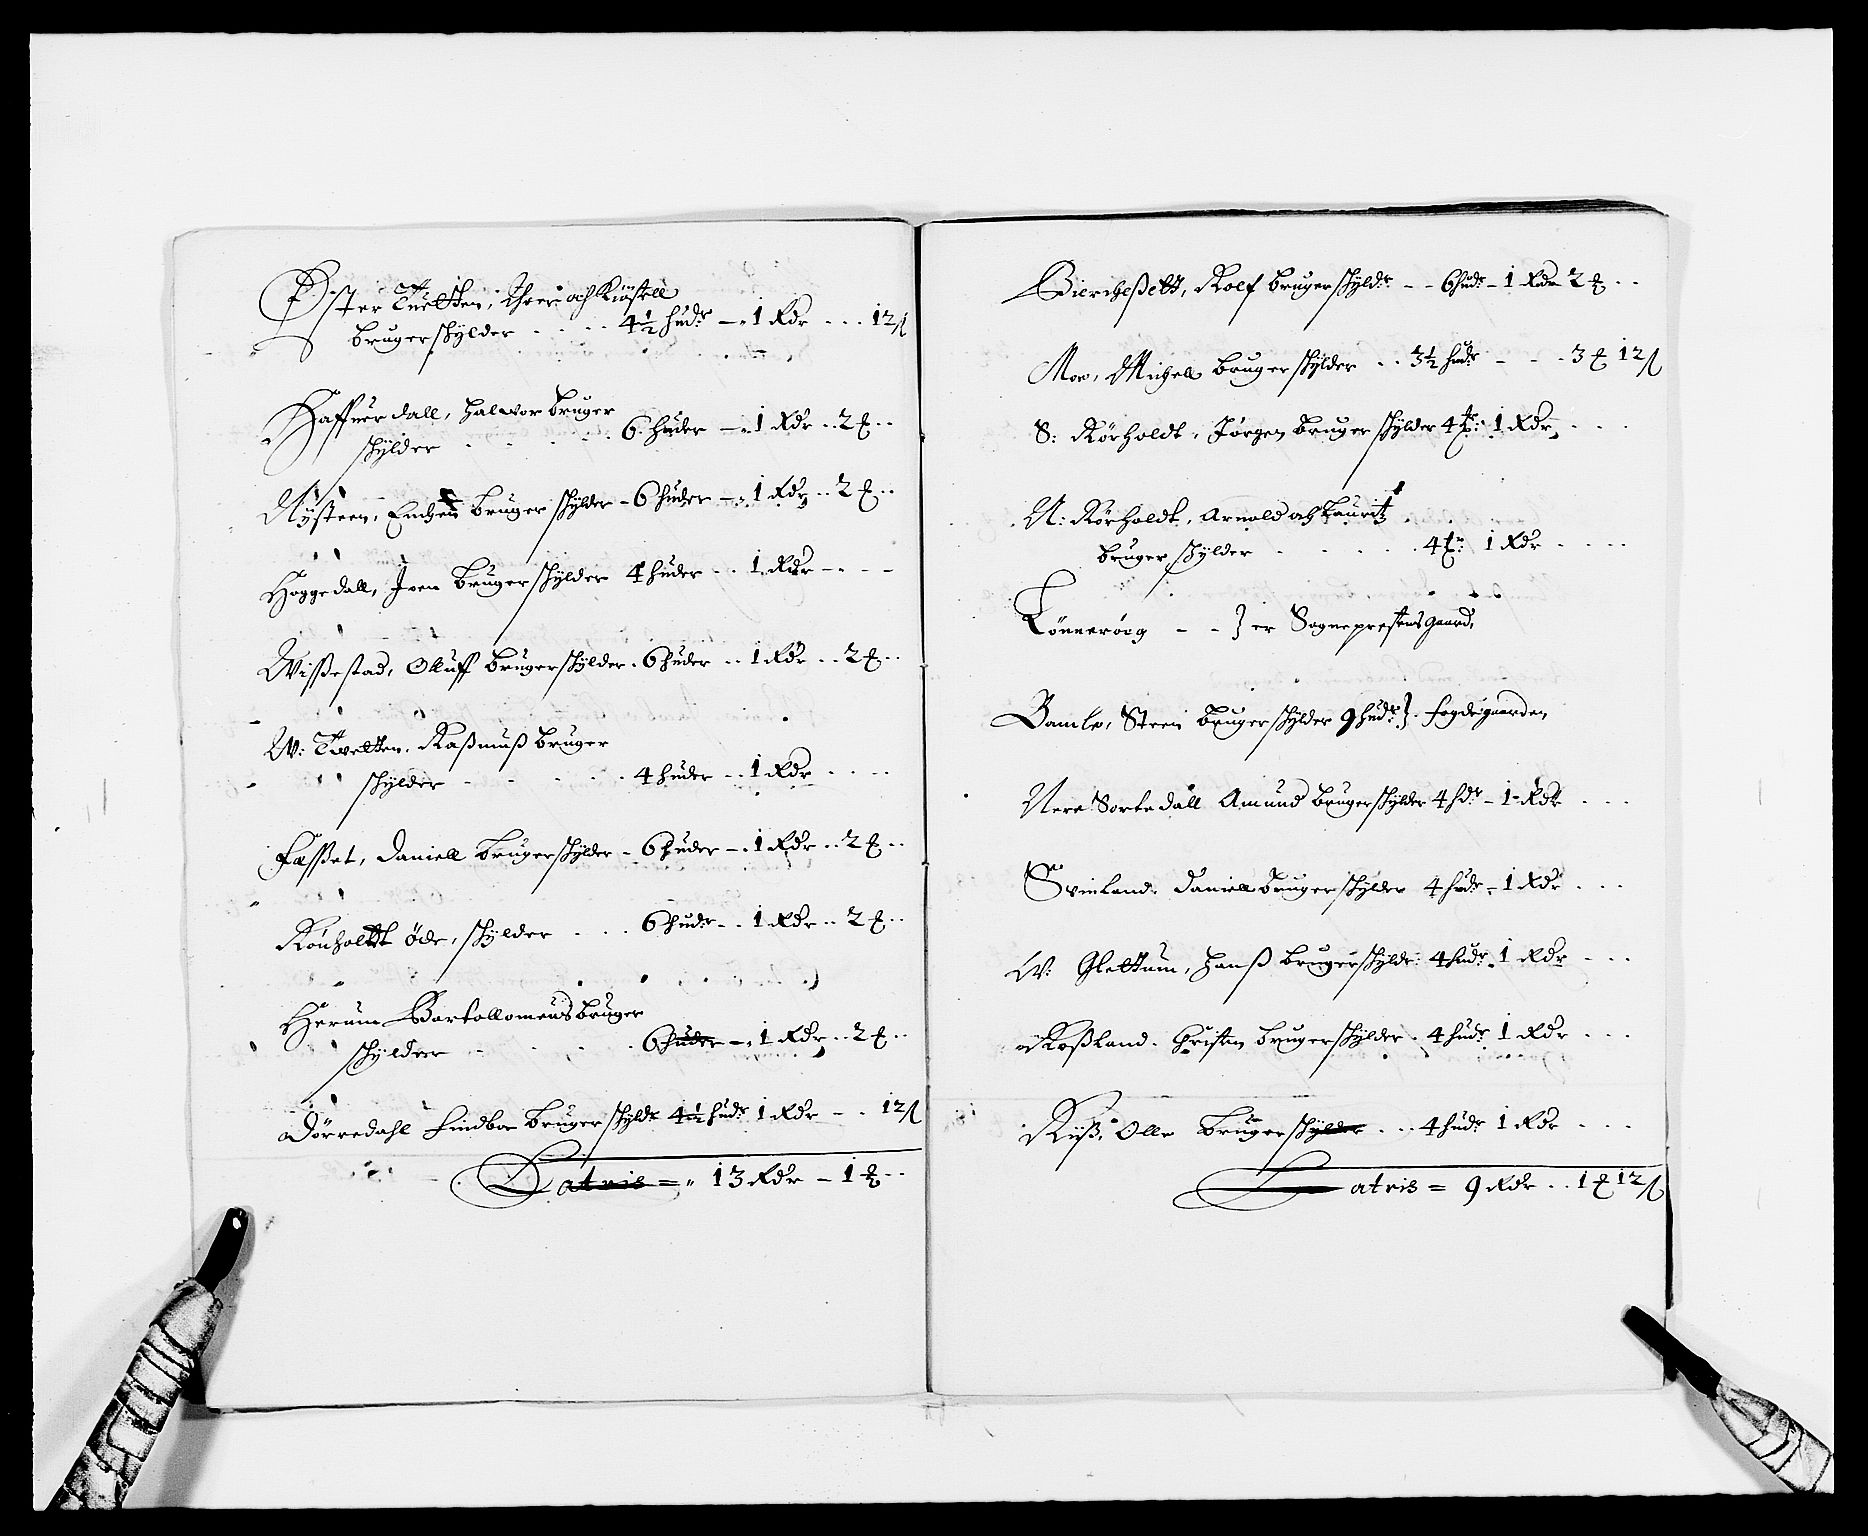 Øster Tueltten, Iffuer och Kiøstell
brugerschylder - - - - 4½ hudr - 1 Rdr - - - 12 ß
Haffuerdall, Halwor bruger
schylder - - - - - 6 huder - 1 Rdr - - 2 ₰ - -
Nÿsteen, brugerschylder - 6 huder - 1 Rdr - - 2 ₰ - -
Hoggedall, Iven brugerschylder 4 huder - - 1 Rdr - - - -
Wissestad, Olluff brugerschylder - 6 huder - - 1 Rdr - - 2 ₰ - -
W: Tweltten, Rasmuß bruger
schylder - - - - - - 4 huder - - 1 Rdr - - - -
Fæsset, Daniell brugerschylder - 6 huder - 1 Rdr - - 2 ₰ - -
Rönholdt øde, schylder - - - 6 hudr - - 1 Rdr - - 2 ₰ - -
Herum Bartollomeus bruger
schylder - - - - - 6 huder - 1 Rdr - - 2 ₰ - -
Dørredahl Findbor brugerschyldr 4½ hudr 1 Rdr - - 12 ß
Latris = 13 Rdr - 1 ₰ - -
Bierchesett, Rolf brugerschyldr - - 6 hudr - 1 Rdr 2 ₰ - -
Moe, Michell brugerschylder - - 3½ hudr - - - 3 ₰ 12 ß
S: Rörholdt, Jørgen brugerschylder 4 1 Rdr - - -
N: Rörholdt, Arnold och Lauritz
brugerschylder - - - - - 4 1 Rdr - - - -
Tönneröeg - - } er Sogneprestens gaard,
Bamle, Steen brugerschylder 9 hudr } fogdegaarden
Nere Sortedall Amund brugerschylder 4 hdr - 1 Rdr - - -
Svinland, Daniell brugerschylder 4 hudr - 1 Rdr - - -
W: Glettum, Hanß brugerschyldr 4 hudr - 1 Rdr - - -
Roßland, Christen brugerschylder - 4 hudr 1 Rdr - - -
Riiß, Olle brugerschylder - - - 4 hudr 1 Rdr - - -
Latris = 9 Rdr - - 1 ₰ 12 ß